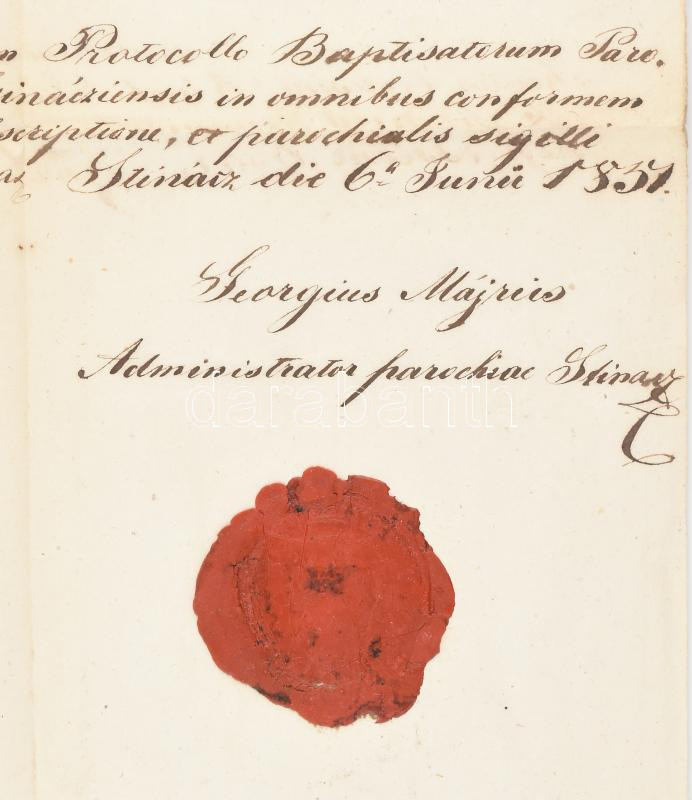 Protocollo Baptisatorum Paro.
inácziensis in omnibus conformem
scriptione, et parochialis sigilli
Stinácz die 6ª Junii 1851.
Georgius Májrics
Administrator parochiae Stinacz
darabanth